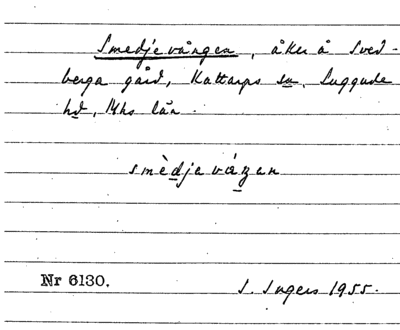 Smedjevången, åker å Sved-
berga gård, Kattarps sn, Luggude
hd, Mhs län.
smèdjaváŋan
Nr 6130. I. Ingers 1955.